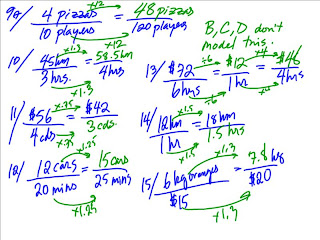 9a/ 4 pizzas / 10 players = 48 pizzas / 120 players
×12
×12
B, C, D don't
model this.
10/ 45km / 3 hrs. = 58.5km / 4 hrs
×1.3
13/ $32 / 6 hrs = $12 / 1 hr = $46 / 4 hrs
÷6
×4
÷6
×4
11/ $56 / 4 cds = $42 / 3 cds.
×.75
×.75
14/ 12km / 1 hr = 18km / 1.5 hrs
×1.5
×1.5
12/ 12 cars / 20 mins = 15 cars / 25 mins
×1.25
×1.25
15/ 6 kg oranges / $15 = 7.8 kg / $20
×1.3
×1.3